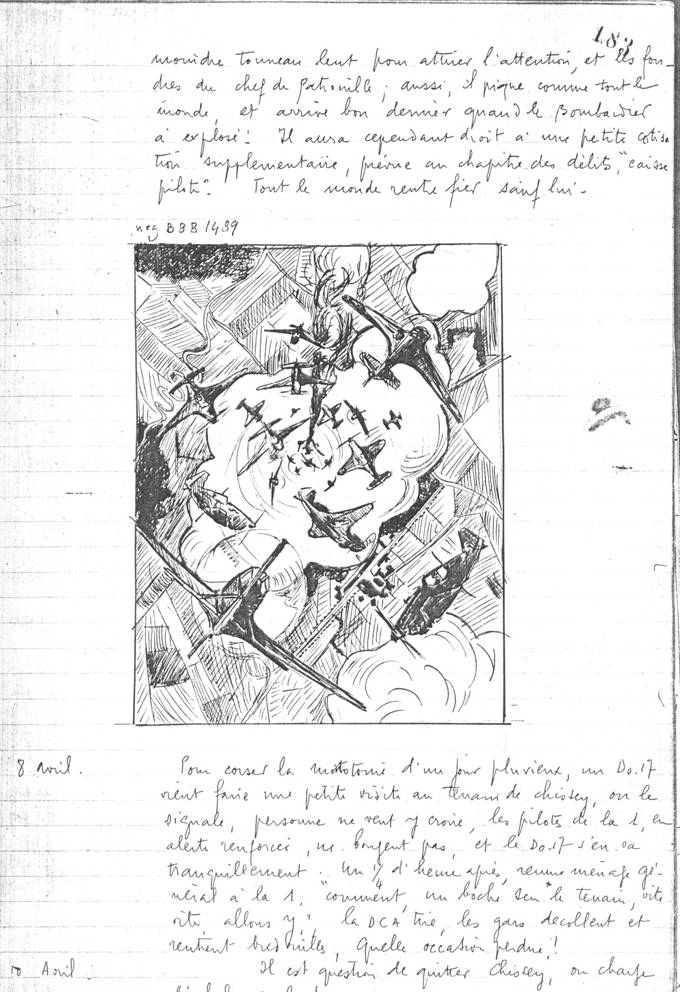 183
moindre tonneau lent pour attirer l'attention, et les fou-
dres du chef de patrouille ; aussi, il pique comme tout le
monde, et arrive bon dernier quand le Bombardier
a explosé ! Il aura cependant droit à une petite cotisa
tion supplémentaire, prévue au chapitre des délits, "caisse
pilote". Tout le monde rentre fier sauf lui.
neg BBB 1439
8 avril. Pour corser la monotonie d'un jour pluvieux, un Do.17
vient faire une petite visite au terrain de Chissey, on le
signale, personne ne veut y croire, les pilotes de la 1, en
alerte renforcée, ne bougent pas, et le Do.17 s'en va
tranquillement. Un 1/4 d'heure après, remue ménage gé-
néral à la 1, "comment, un boche sur le terrain, vite
vite, allons y". la DCA tire, les gars décollent et
rentrent bredouilles, Quelle occasion perdue !
10 Avril. Il est question de quitter Chissey, on charge